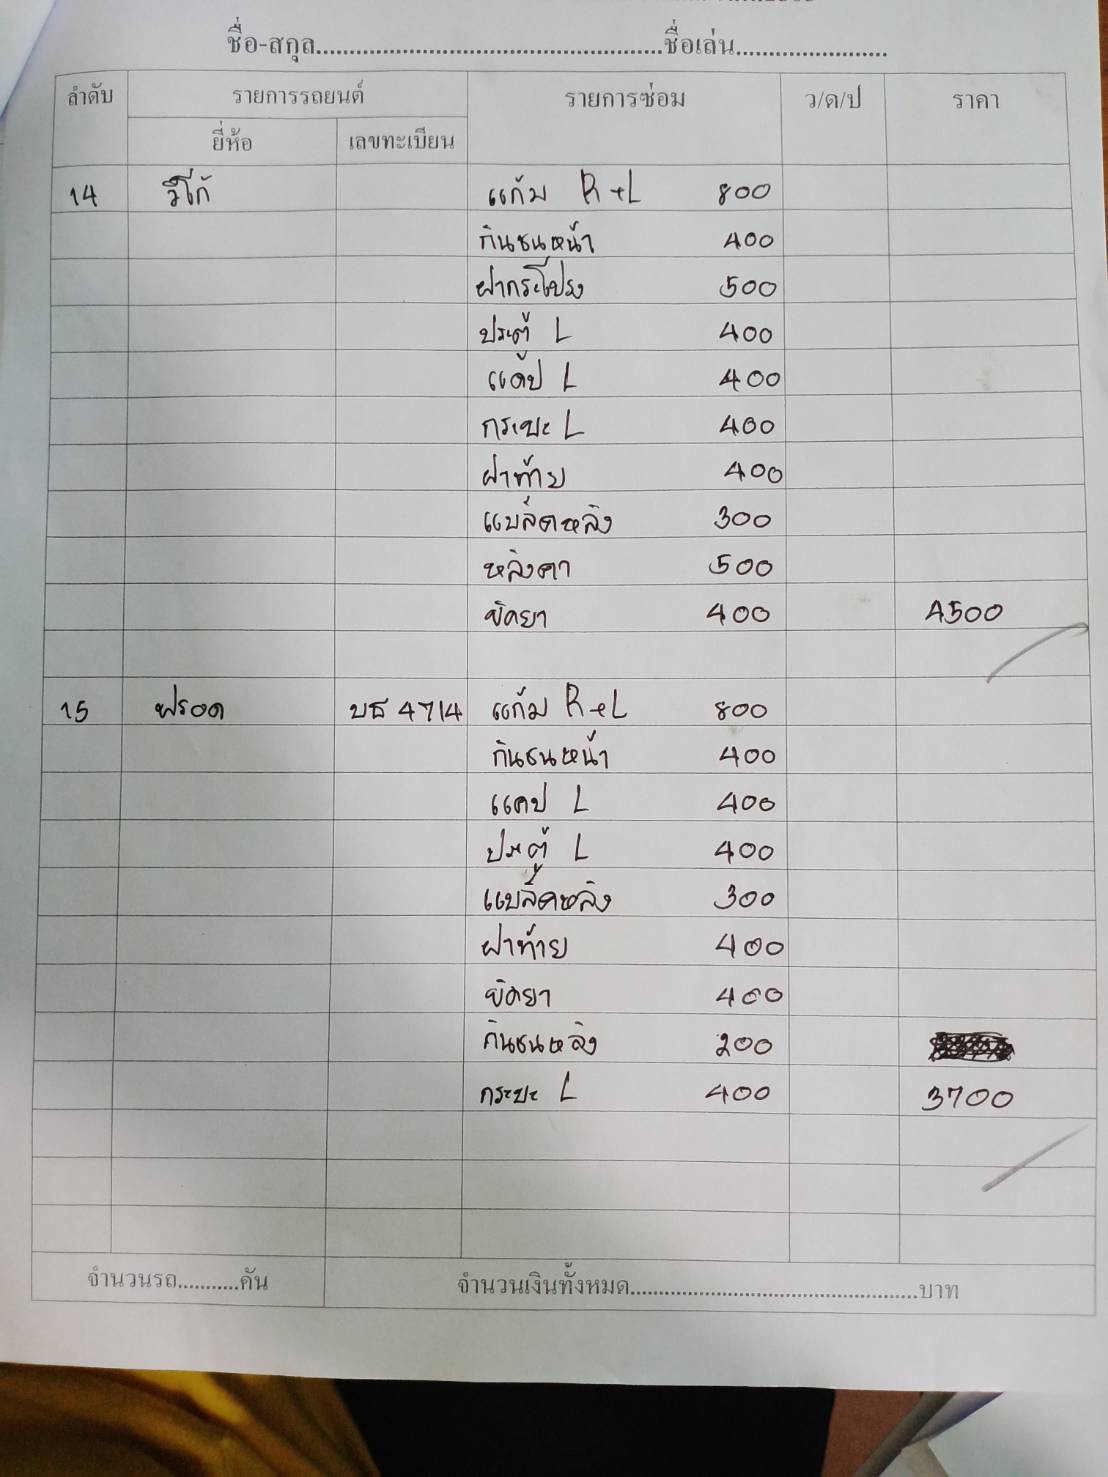 ชื่อ-สกุล..........................................................ชื่อเล่น.........................
ลำดับ รายการรถยนต์ รายการซ่อม ว/ด/ป ราคา
ยี่ห้อ เลขทะเบียน
14 วีโก้ แก้ม R+L 800
กันชนหน้า 400
ฝากระโปรง 500
ประตู L 400
แค้ป L 400
กระบะ L 400
ฝาท้าย 400
แบล็ดหลัง 300
หลังคา 500
ขัดยา 400 4500
15 ฟรอด บธ 4714 แก้ม R+L 800
กันชนหน้า 400
แคป L 400
ประตู L 400
แบล็ดหลัง 300
ฝาท้าย 400
ขัดยา 400
กันชนหลัง 200
กระบะ L 400 3700
จำนวนรถ...........คัน จำนวนเงินทั้งหมด................................................บาท